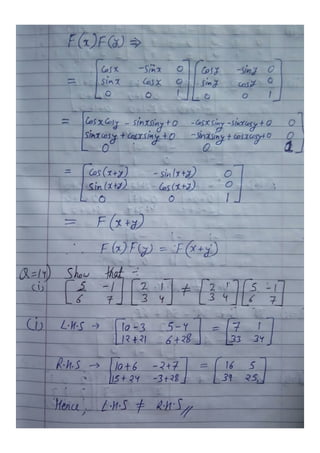 F(x)F(y) ⇒
= [cosx -sinx 0; sinx cosx 0; 0 0 1] [cosy -siny 0; siny cosy 0; 0 0 1]
= [cosxcosy - sinxsiny+0 -cosxsiny-sinxcosy+0 0; sinxcosy+cosxsiny+0 -sinxsiny+cosxcosy+0 0; 0 0 1]
= [cos(x+y) -sin(x+y) 0; sin(x+y) cos(x+y) 0; 0 0 1]
= F(x+y)
∴ F(x)F(y) = F(x+y)
Q=14) Show that :-
(i) [5 -1; 6 7] [2 1; 3 4] ≠ [2 1; 3 4] [5 -1; 6 7]
(i) L.H.S → [10-3 5-4; 12+21 6+28] = [7 1; 33 34]
R.H.S → [10+6 -2+7; 15+24 -3+28] = [16 5; 39 25]
Hence, L.H.S ≠ R.H.S//